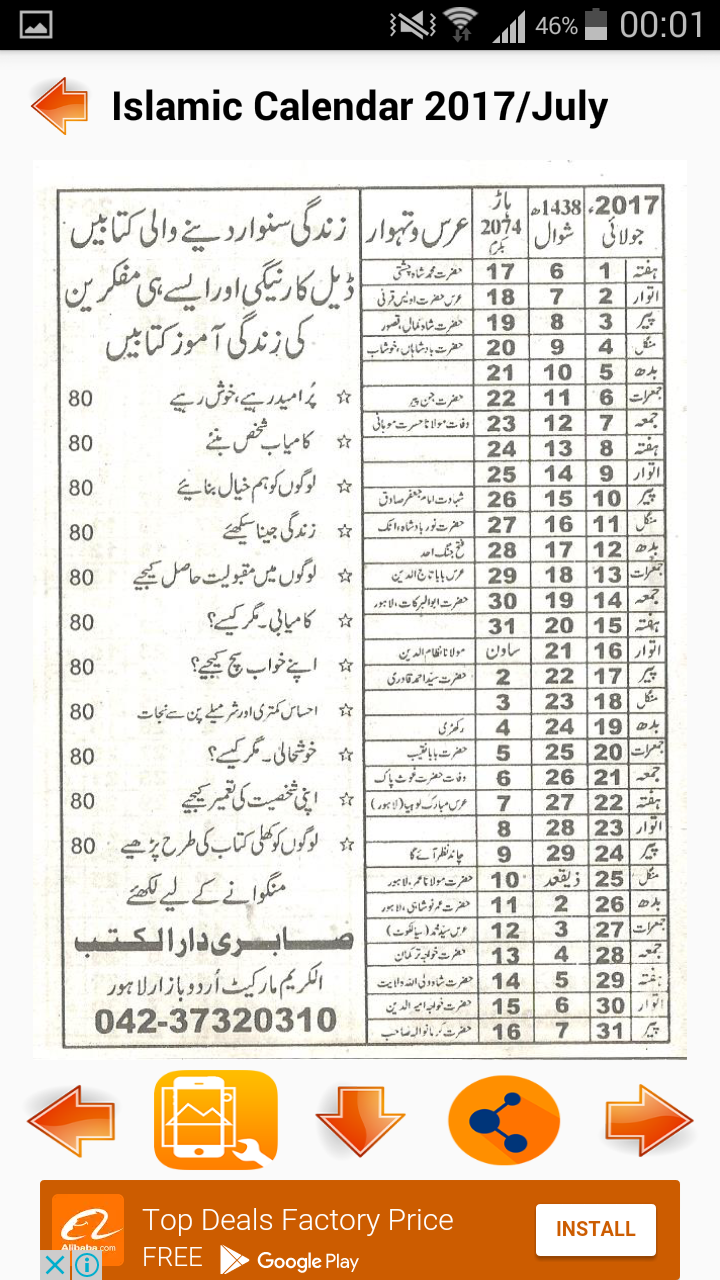 46% 00:01
Islamic Calendar 2017/July
2017ء جولائی 1438ھ شوال ہاڑ 2074 بکرمی عرس و تہوار
ہفتہ 1 6 17 حضرت محمد شاہ چشتی
اتوار 2 7 18 عرس حضرت اویس قرنی
پیر 3 8 19 حضرت شاہ کمال، قصور
منگل 4 9 20 حضرت بادشاہاں، خوشاب
بدھ 5 10 21
جمعرات 6 11 22 حضرت جن پیر
جمعہ 7 12 23 وفات مولانا حسرت موہانی
ہفتہ 8 13 24
اتوار 9 14 25
پیر 10 15 26 شہادت امام جعفر صادق
منگل 11 16 27 حضرت نور بادشاہ، اٹک
بدھ 12 17 28 فتح جنگ احد
جمعرات 13 18 29 عرس بابا تاج الدین
جمعہ 14 19 30 حضرت ابوالبرکات، لاہور
ہفتہ 15 20 31
اتوار 16 21 ساون مولانا نظام الدین
پیر 17 22 2 حضرت سید احمد قادری
منگل 18 23 3
بدھ 19 24 4 رکھڑی
جمعرات 20 25 5 حضرت بابا نقیب
جمعہ 21 26 6 وفات حضرت غوث پاک
ہفتہ 22 27 7 عرس مبارک (لاہور)
اتوار 23 28 8
پیر 24 29 9 چاند نظر آئے گا
منگل 25 ذیقعد 10 حضرت مولانا عمر، لاہور
بدھ 26 2 11 حضرت عمر نوشاہی، لاہور
جمعرات 27 3 12 عرس سید محمد (سیالکوٹ)
جمعہ 28 4 13 حضرت خواجہ ترکمان
ہفتہ 29 5 14 حضرت شاہ ولی اللہ ولایت
اتوار 30 6 15 حضرت خواجہ امیر الدین
پیر 31 7 16 حضرت کرمانوالہ صاحب
زندگی سنوار دینے والی کتابیں
ڈیل کارنیگی اور ایسے ہی مفکرین
کی زندگی آموز کتابیں
☆ پُر امید رہیے، خوش رہیے 80
☆ کامیاب شخص بنئے 80
☆ لوگوں کو ہم خیال بنائیے 80
☆ زندگی جینا سیکھئے 80
☆ لوگوں میں مقبولیت حاصل کیجیے 80
☆ کامیابی۔ مگر کیسے؟ 80
☆ اپنے خواب سچ کیجیے؟ 80
☆ احساس کمتری اور شرمیلے پن سے نجات 80
☆ خوشحالی۔ مگر کیسے؟ 80
☆ اپنی شخصیت کی تعمیر کیجیے 80
☆ لوگوں کو کھلی کتاب کی طرح پڑھیے 80
منگوانے کے لیے لکھئے
صابری دارالکتب
الکریم مارکیٹ اُردو بازار لاہور
042-37320310
Alibaba.com
Top Deals Factory Price
FREE Google Play
INSTALL